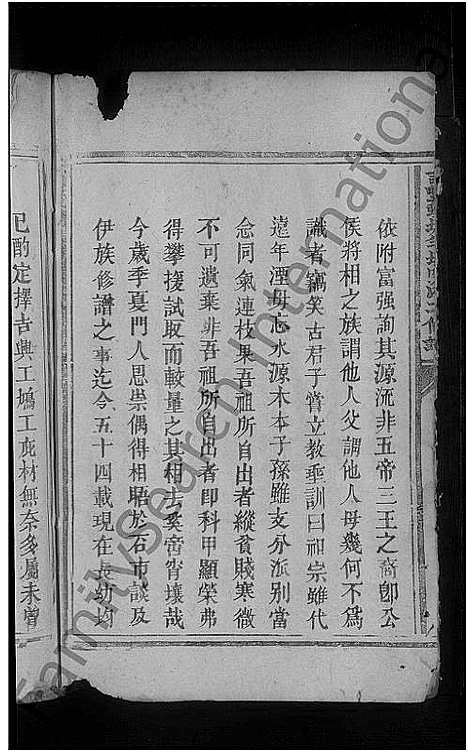 依附富强詢其源流非五帝三王之裔卽公
侯將相之族謂他人父謂他人母幾何不爲
識者竊笑古君子嘗立敎垂訓曰祖宗雖代
遠年湮毋忘水源木本子孫雖支分派別當
念同氣連枝果吾祖所自出者縱貧賤寒微
不可遺棄非吾祖所自出者卽科甲顯榮弗
得攀援試取而較量之其相去奚啻霄壤哉
今歲季夏門人思崇偶得相晤於石市談及
伊族修譜之事迄今五十四載現在長幼均
已酌定擇吉興工鳩工庀材無奈多屬未曾
FamilySearch International